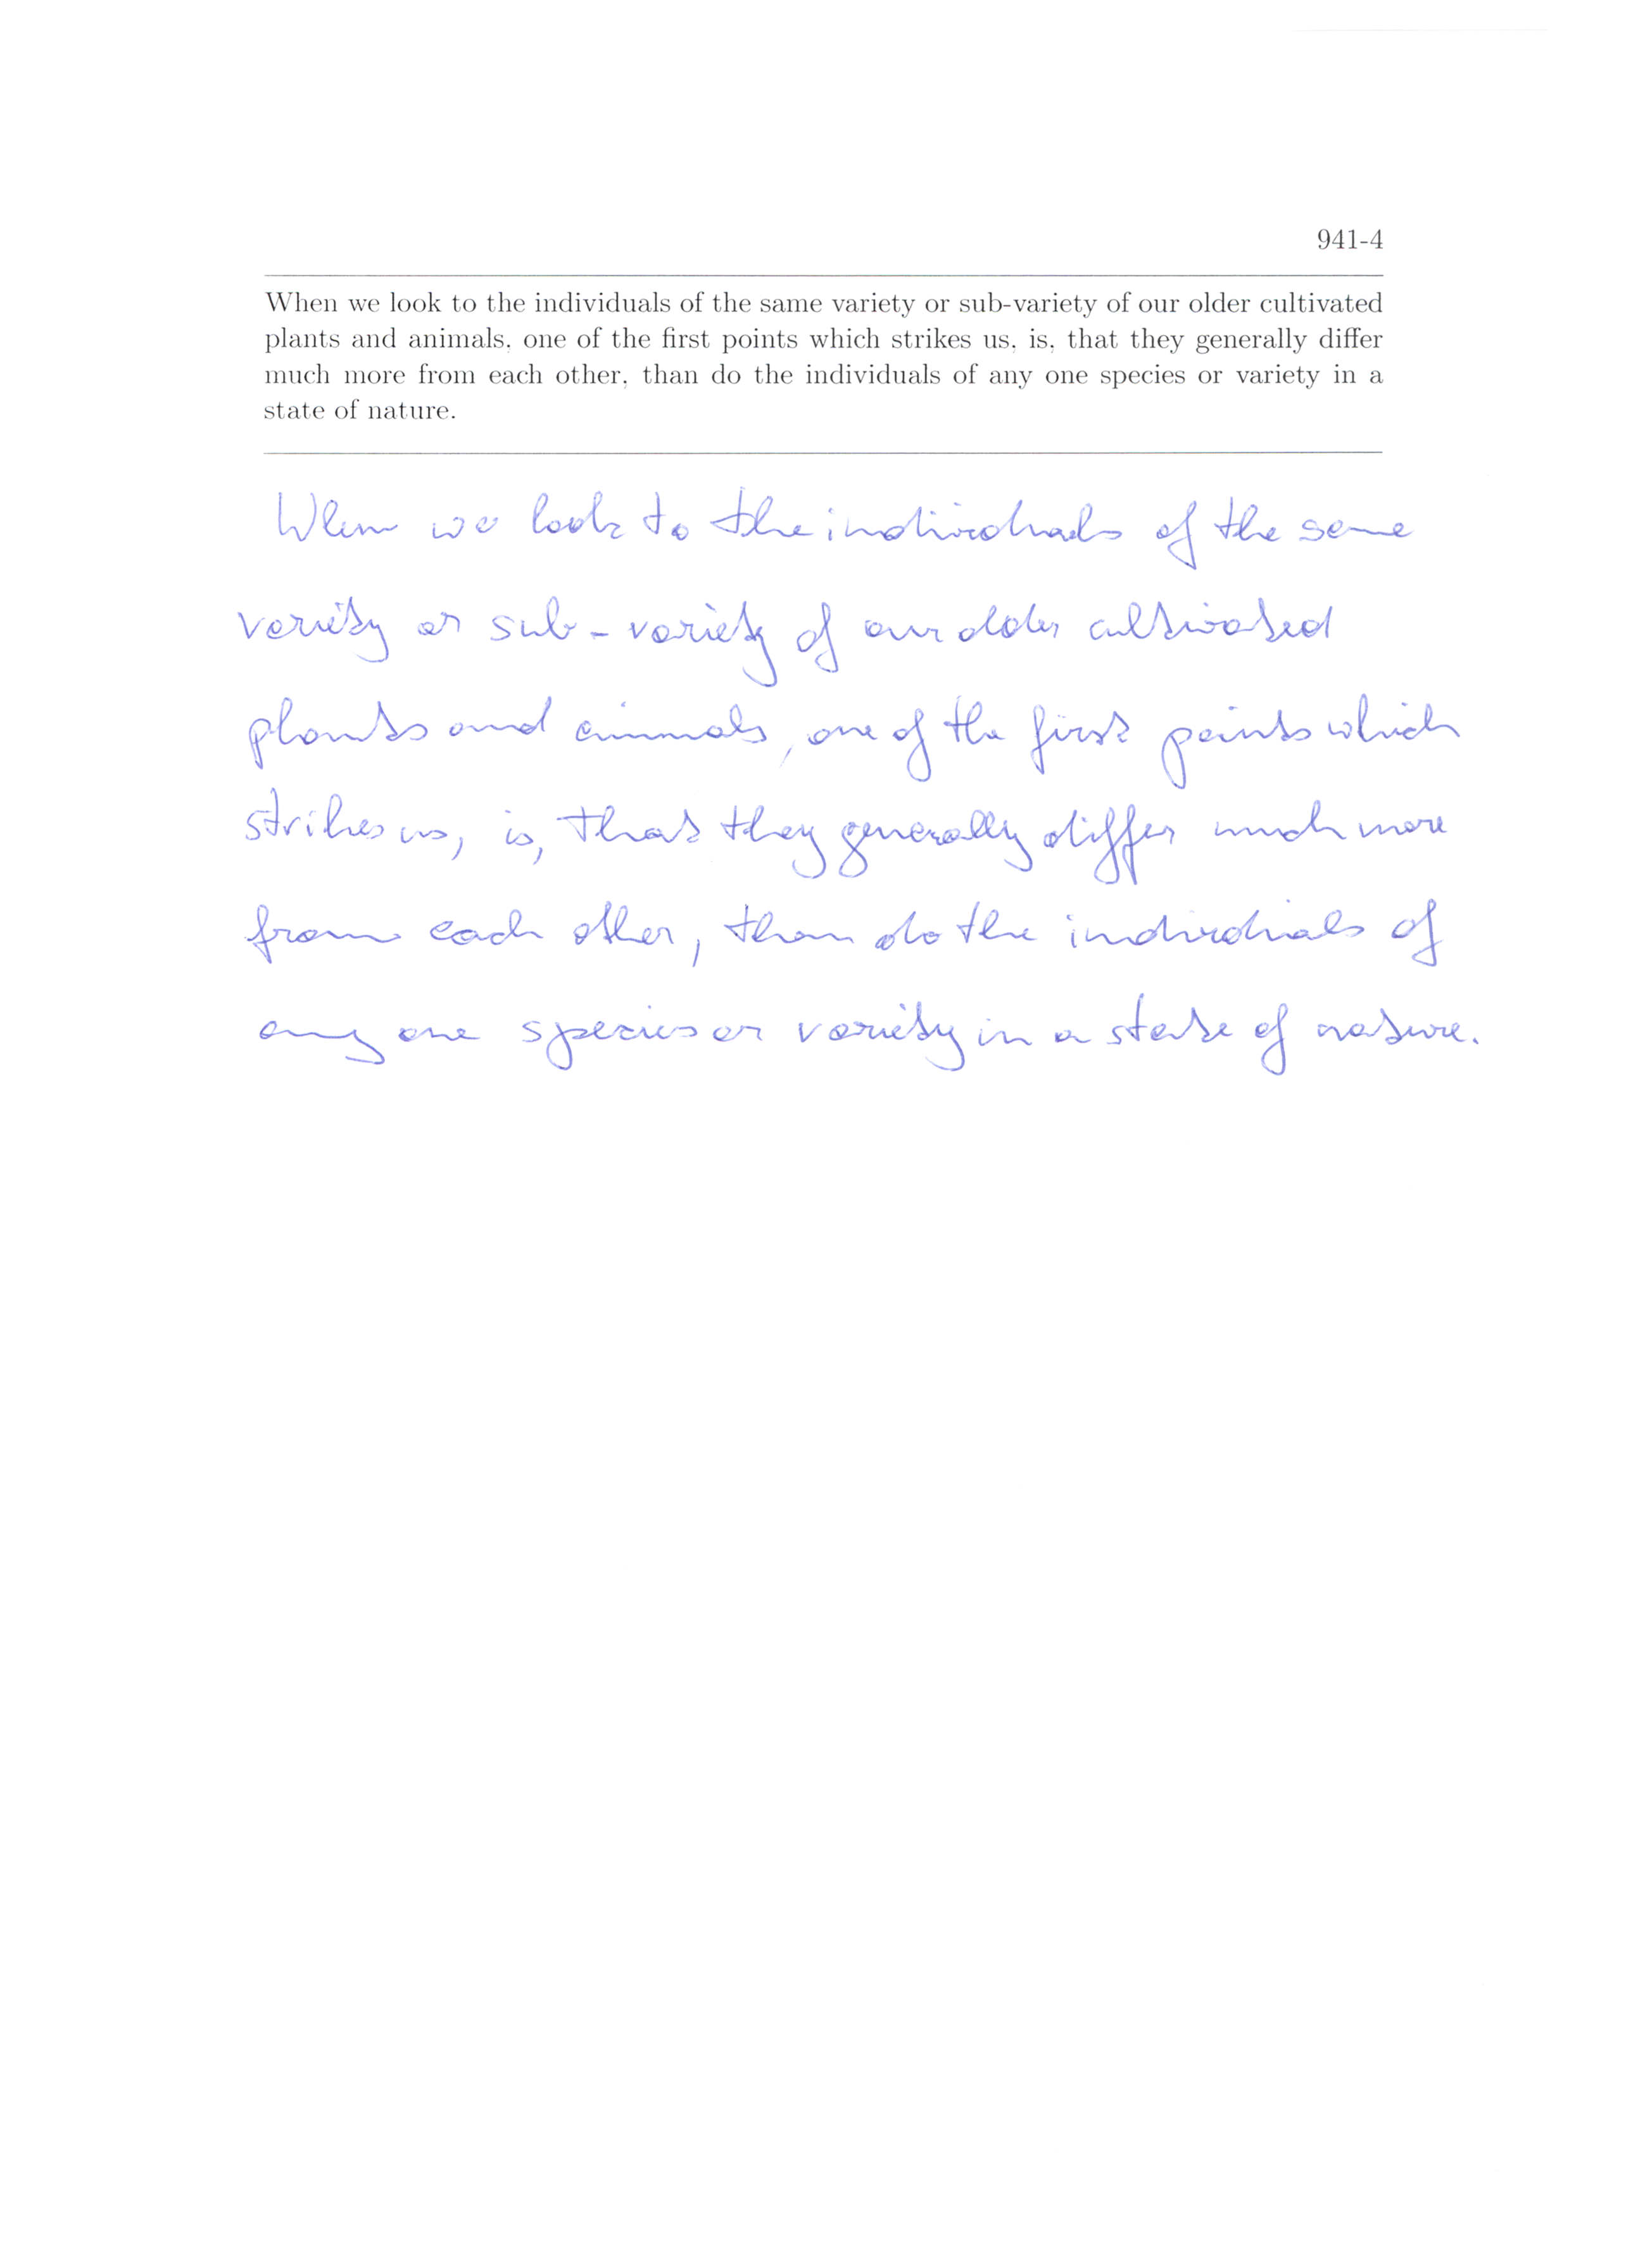 941-4
When we look to the individuals of the same variety or sub-variety of our older cultivated
plants and animals, one of the first points which strikes us, is, that they generally differ
much more from each other, than do the individuals of any one species or variety in a
state of nature.
When we look to the individuals of the same
variety or sub-variety of our older cultivated
plants and animals, one of the first points which
strikes us, is, that they generally differ much more
from each other, than do the individuals of
any one species or variety in a state of nature.